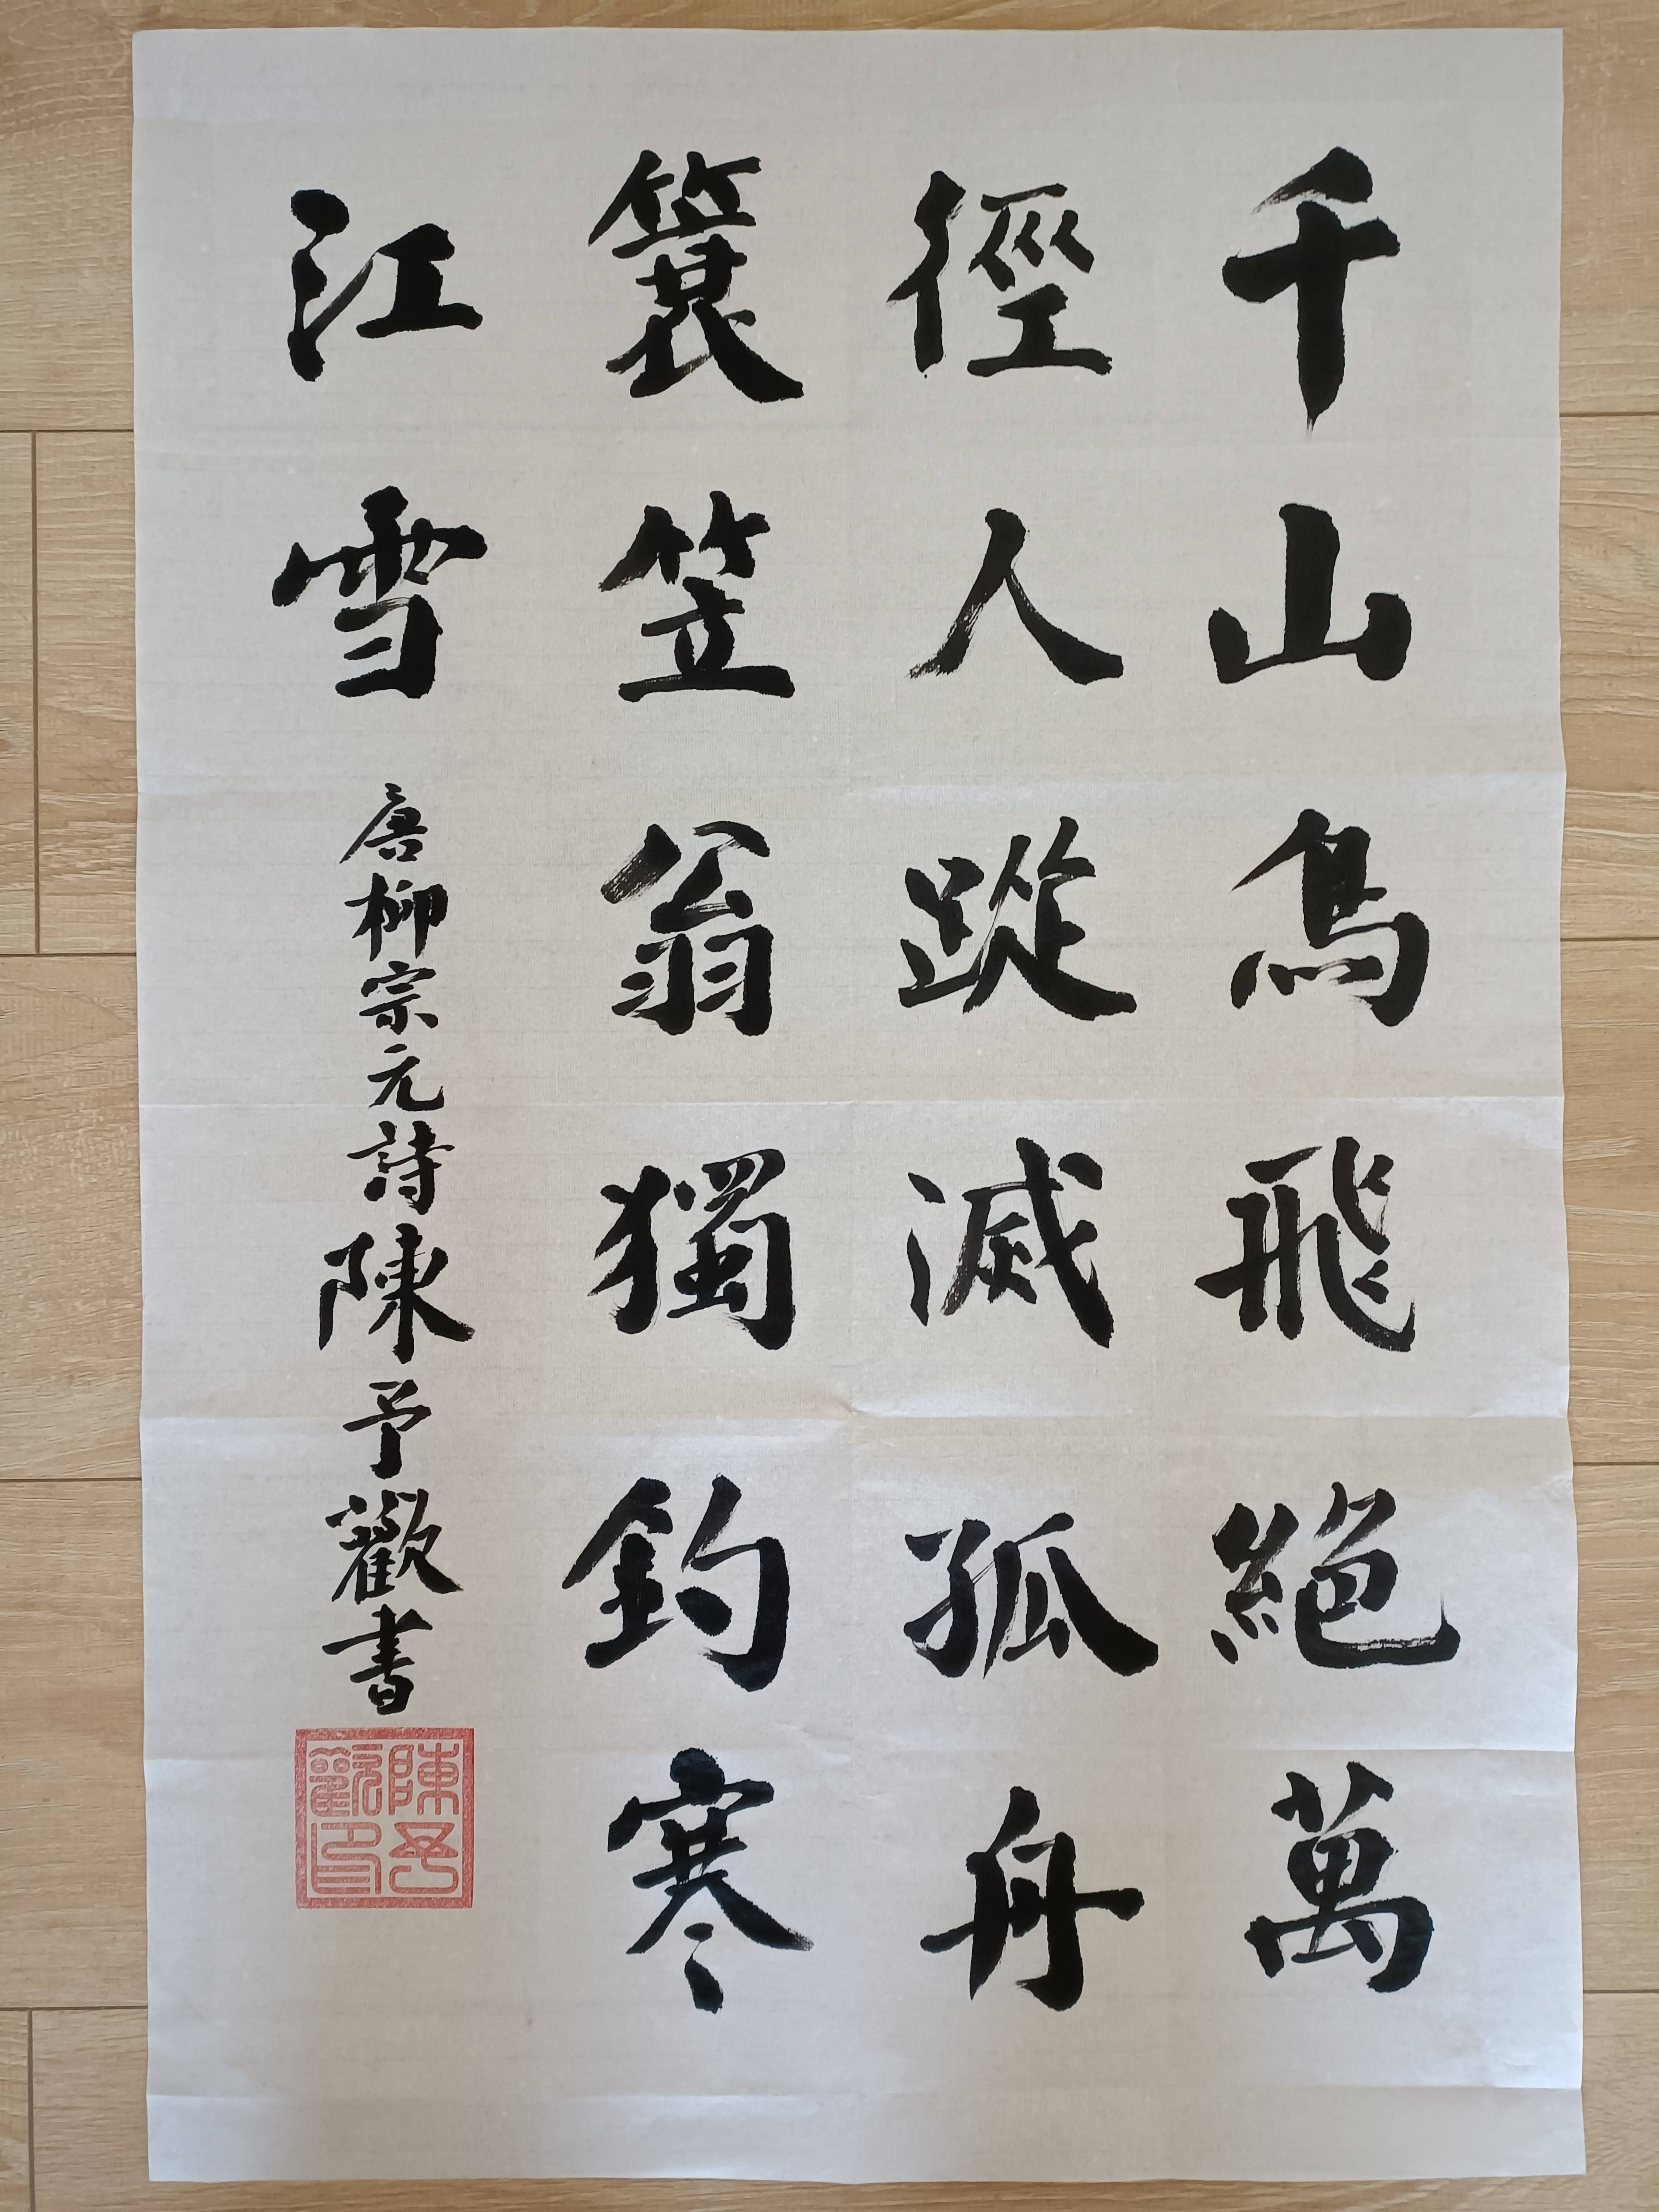 千山鳥飛絕萬
徑人蹤滅孤舟
簑笠翁獨釣寒
江雪
唐柳宗元詩陳予歡書
陳予歡印